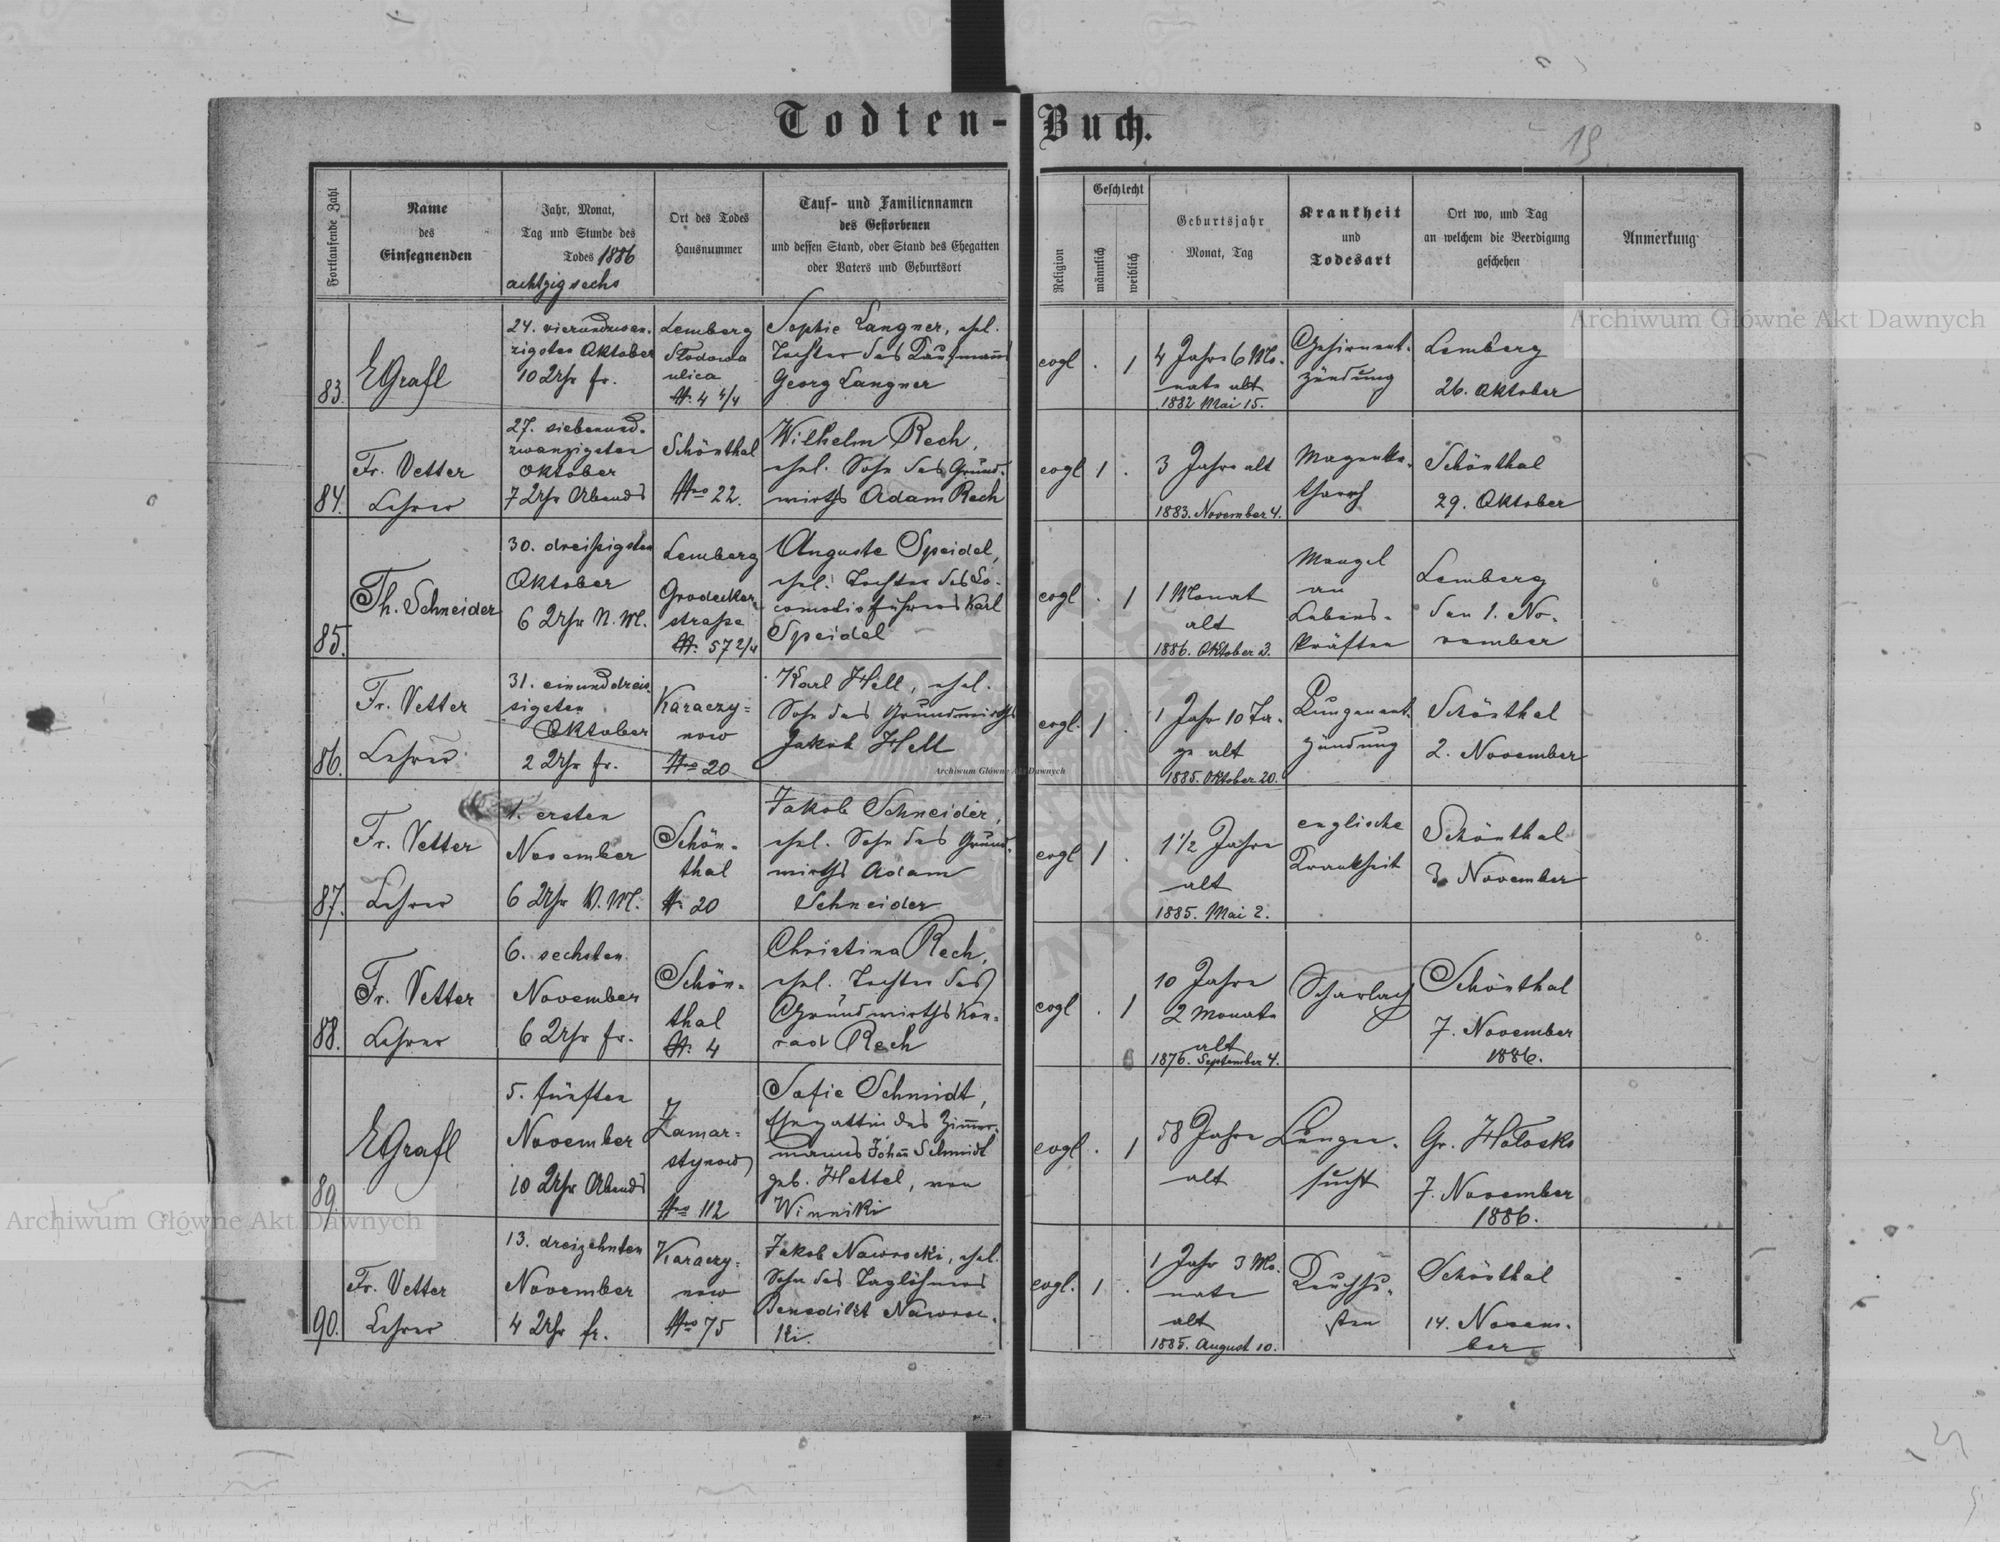 Todten-Buch.
19
Fortlaufende Zahl
Name
des
Einsegnenden
Jahr, Monat,
Tag und Stunde des
Todes 1886
achtzig sechs
Ort des Todes
Hausnummer
Tauf- und Familiennamen
des Gestorbenen
und dessen Stand, oder Stand des Ehegatten
oder Vaters und Geburtsort
Religion
Geschlecht
männlich
weiblich
Geburtsjahr
Monat, Tag
Krankheit
und
Todesart
Ort wo, und Tag
an welchem die Beerdigung
geschehen
Anmerkung
83.
EGrafl
24. vierundzwan-
zigsten Oktober
10 Uhr fr.
Lemberg
Słodowa
ulica
N. 4 4/4
Sophie Langner, ehel.
Tochter des Kaufmanns
Georg Langner
evgl
. 1
4 Jahre 6 Mo-
nate alt
1882 Mai 15.
Gehirnent-
zündung
Lemberg
26. Oktober
84.
Fr. Vetter
Lehrer
27. siebenund-
zwanzigsten
Oktober
7 Uhr Abends
Schönthal
Nro 22.
Wilhelm Rech,
ehel. Sohn des Grund-
wirths Adam Rech
evgl
1 .
3 Jahre alt
1883. November 4.
Magenka-
tharrh
Schönthal
29. Oktober
85.
Th. Schneider
30. dreißigsten
Oktober
6 Uhr N. M.
Lemberg
Grodecker-
straße
N. 57 2/4
Auguste Speidel,
ehel. Tochter des Lo-
comotivführers Karl
Speidel
evgl
. 1
1 Monat
alt
1886. Oktober 3.
Mangel
an
Lebens-
kräften
Lemberg
den 1. No-
vember
86.
Fr. Vetter
Lehrer
31. einunddreis-
sigsten
Oktober
2 Uhr fr.
Karaczy=
now
Nro 20
Karl Hell, ehel.
Sohn des Grundwirths
Jakob Hell
evgl.
1 .
1 Jahr 10 Ta-
ge alt
1885. Oktober 20.
Lungenent-
zündung
Schönthal
2. November
87.
Fr. Vetter
Lehrer
1. ersten
November
6 Uhr V. M.
Schön-
thal
N. 20
Jakob Schneider,
ehel. Sohn des Grund-
wirths Adam
Schneider
evgl
1 .
1 1/2 Jahre
alt
1885. Mai 2.
englische
Krankheit
Schönthal
3. November
88.
Fr. Vetter
Lehrer
6. sechsten
November
6 Uhr fr.
Schön-
thal
N. 4
Christina Rech,
ehel. Tochter des
Grundwirths Kon-
rad Rech
evgl
. 1
10 Jahre
2 Monate
alt
1876. September 4.
Scharlach
Schönthal
7. November
1886.
89.
EGrafl
5. fünften
November
10 Uhr Abends
Zamar=
stynow
Nro 112
Sofie Schmidt,
Ehegattin des Zimmer-
manns Johan̄ Schmidt
geb. Hettel, von
Winniki
evgl
. 1
58 Jahre
alt
Lungen-
sucht
Gr. Hołosko
7. November
1886.
90.
Fr. Vetter
Lehrer
13. dreizehnten
November
4 Uhr fr.
Karaczy-
now
Nro 75
Jakob Nawrocki, ehel.
Sohn des Taglöhners
Benedikt Nawroc-
ki.
evgl.
1 .
1 Jahr 3 Mo-
nate
alt
1885. August 10.
Keuchhu-
sten
Schönthal
14. Novem-
ber
Archiwum Główne Akt Dawnych
Archiwum Główne Akt Dawnych
Archiwum Główne Akt Dawnych